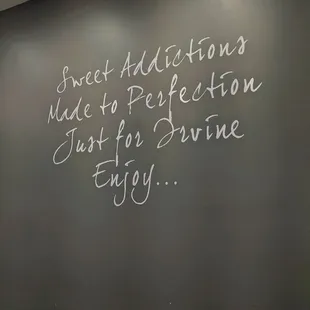 Sweet Addictions
Made to Perfection
Just for Irvine
Enjoy...